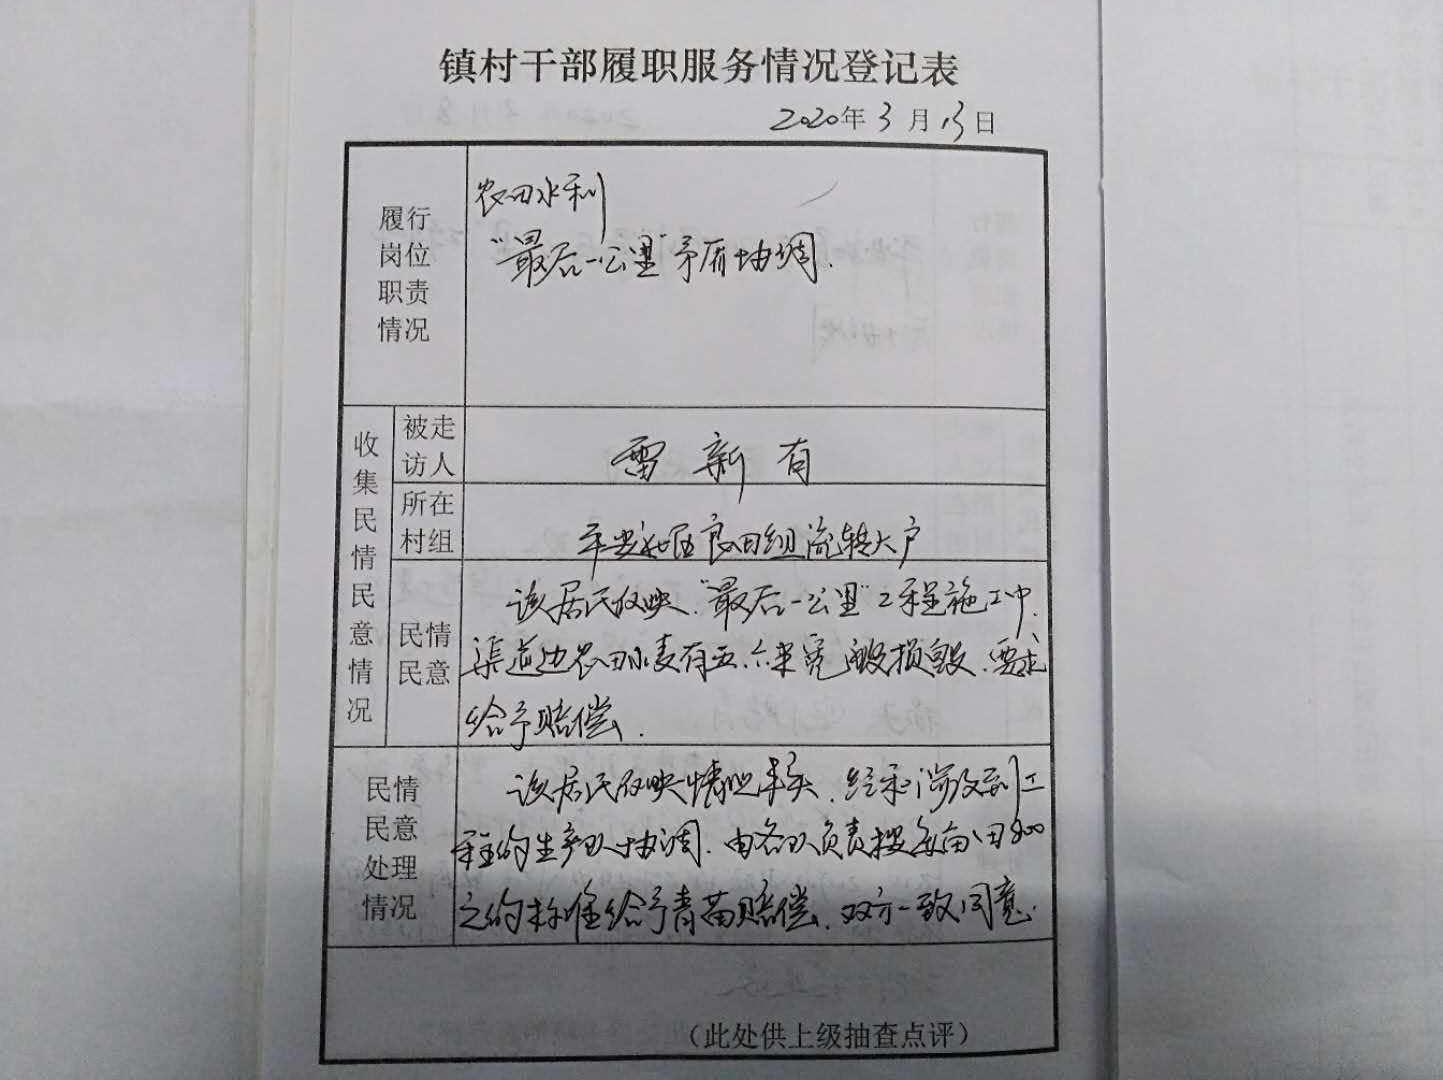 镇村干部履职服务情况登记表
2020年3月13日
履行
岗位
职责
情况
农田水利
“最后一公里”矛盾协调.
收集民情民意情况
被走
访人
雷新有
所在
村组
平安社区良田组流转大户
民情
民意
该居民反映.“最后一公里”工程施工中.
渠道边农田小麦有五.六米宽被损毁.要求
给予赔偿.
民情
民意
处理
情况
该居民反映情况属实.经和涉及到工
程的生产队协调.由各队负责按每亩田800
元的标准给予青苗赔偿.双方一致同意.
（此处供上级抽查点评）